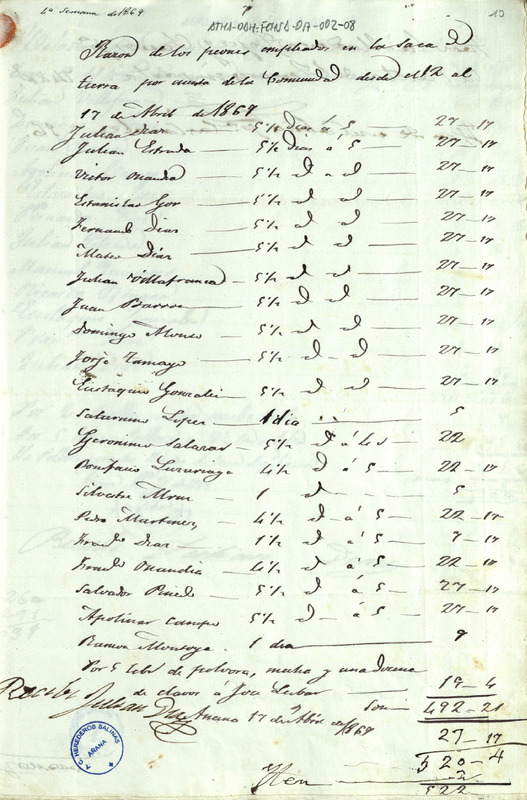 4ª Semana de 1869
ATHA-DAH-FCHSD-DA-002-08
10
Razon de los peones empleados en la saca de
tierra por cuenta de la Comunidad desde el 12 al
17 de Abril de 1869
Julian Diaz — 5 1/2 dias á 5 — 27-17
Julian Estrada — 5 1/2 dias á 5 — 27-17
Victor Onandia — 5 1/2 id a id — 27-17
Estanislao Gor — 5 1/2 id id — 27-17
Fernando Diaz — 5 1/2 id id — 27-17
Mateo Diaz — 5 1/2 id id — 27-17
Julian Villafranca — 5 1/2 id id — 27-17
Juan — 5 1/2 id id — 27-17
Domingo Alonso — 5 1/2 id id — 27-17
Jorje Tamayo — 5 1/2 id - id — 27-17
Eustaquio Gonzalez — 5 1/2 id id — 27-17
Saturnino Lopez — 1 dia — 5
Geronimo Salazar — 5 1/2 id á 4 id — 22
Bonifacio Luzuriaga — 4 1/2 id á 5 — 22-17
Silvestre — 1 id — 5
Pedro Martinez — 4 1/2 id á 5 — 22-17
Franco Diaz — 1 1/2 id á 5 — 7-17
Franco Onandia — 4 1/2 id á 5 — 22-17
Salvador Pinedo — 5 1/2 id á 5 — 27-17
Apolinar Campo — 5 1/2 id - á 5 — 27-17
Ramon Montoya — 1 dia
Por 5 de polvora, mecha y una docena
de clavos á — 19-4
Son — 492-21
Recibi Julian Diaz Anana 17 de Abril de 1869
27-17
520-4
Iten — 2
522
A.C. HEREDEROS SALINAS
AÑANA